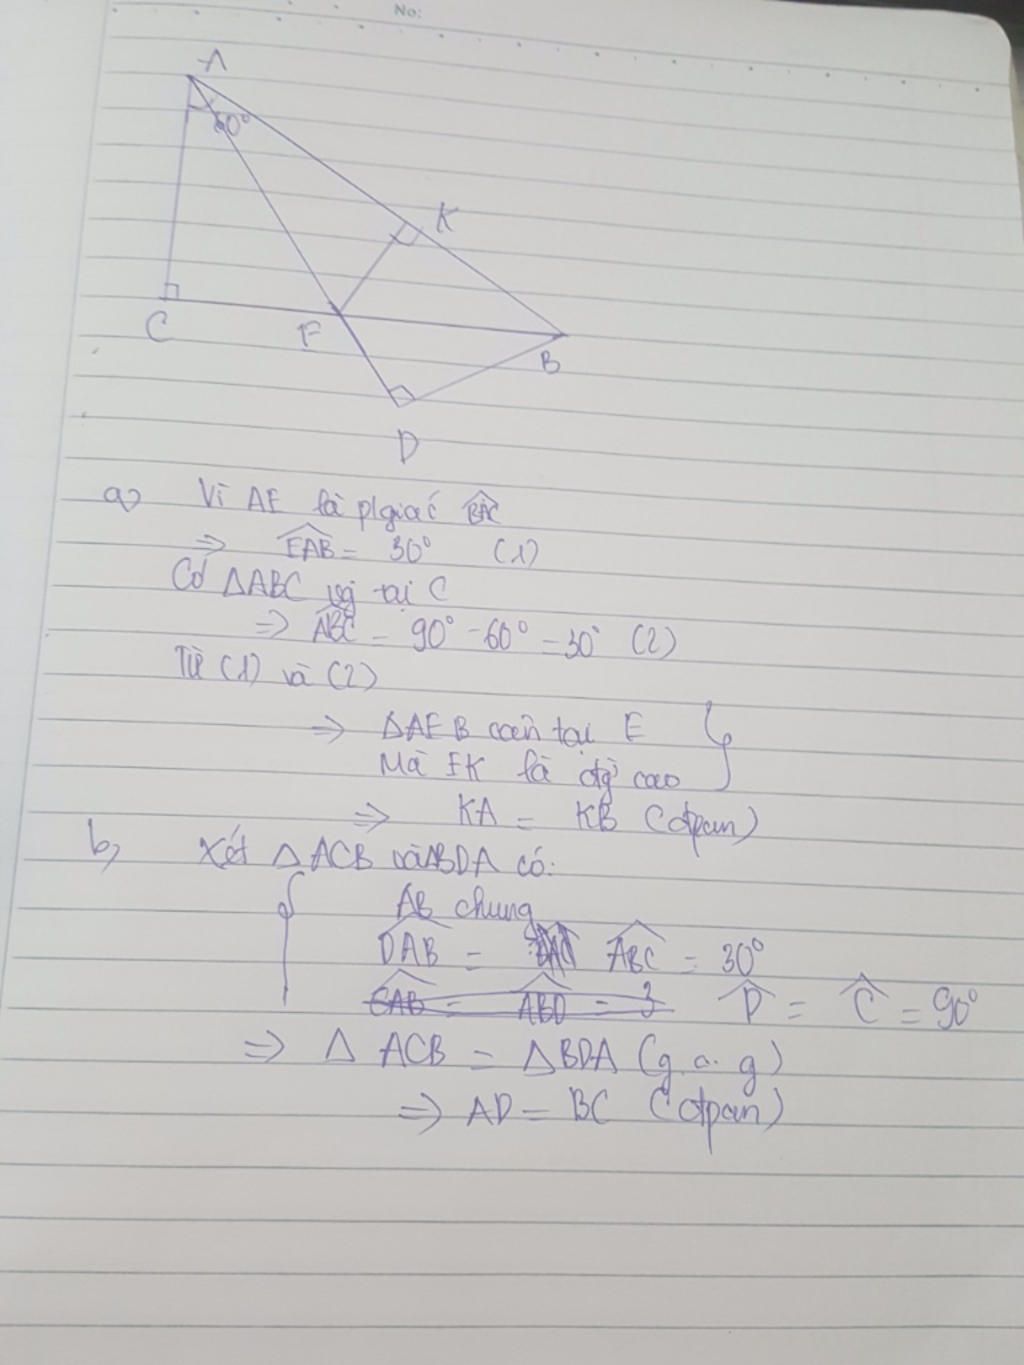 No:
A
60°
K
C
E
B
D
a) Vì AE là p/giác BAC
=> EAB = 30° (1)
Có ΔABC vg tại C
=> ABC = 90° - 60° = 30° (2)
Từ (1) và (2)
=> ΔAEB cân tại E
Mà EK là đg cao
=> KA = KB (đpcm)
b, Xét ΔACB và ΔBDA có:
AB chung
DAB = ABC = 30°
CAB = ABD = 3 D = C = 90°
=> Δ ACB = ΔBDA (g.c.g)
=> AD = BC (đpcm)